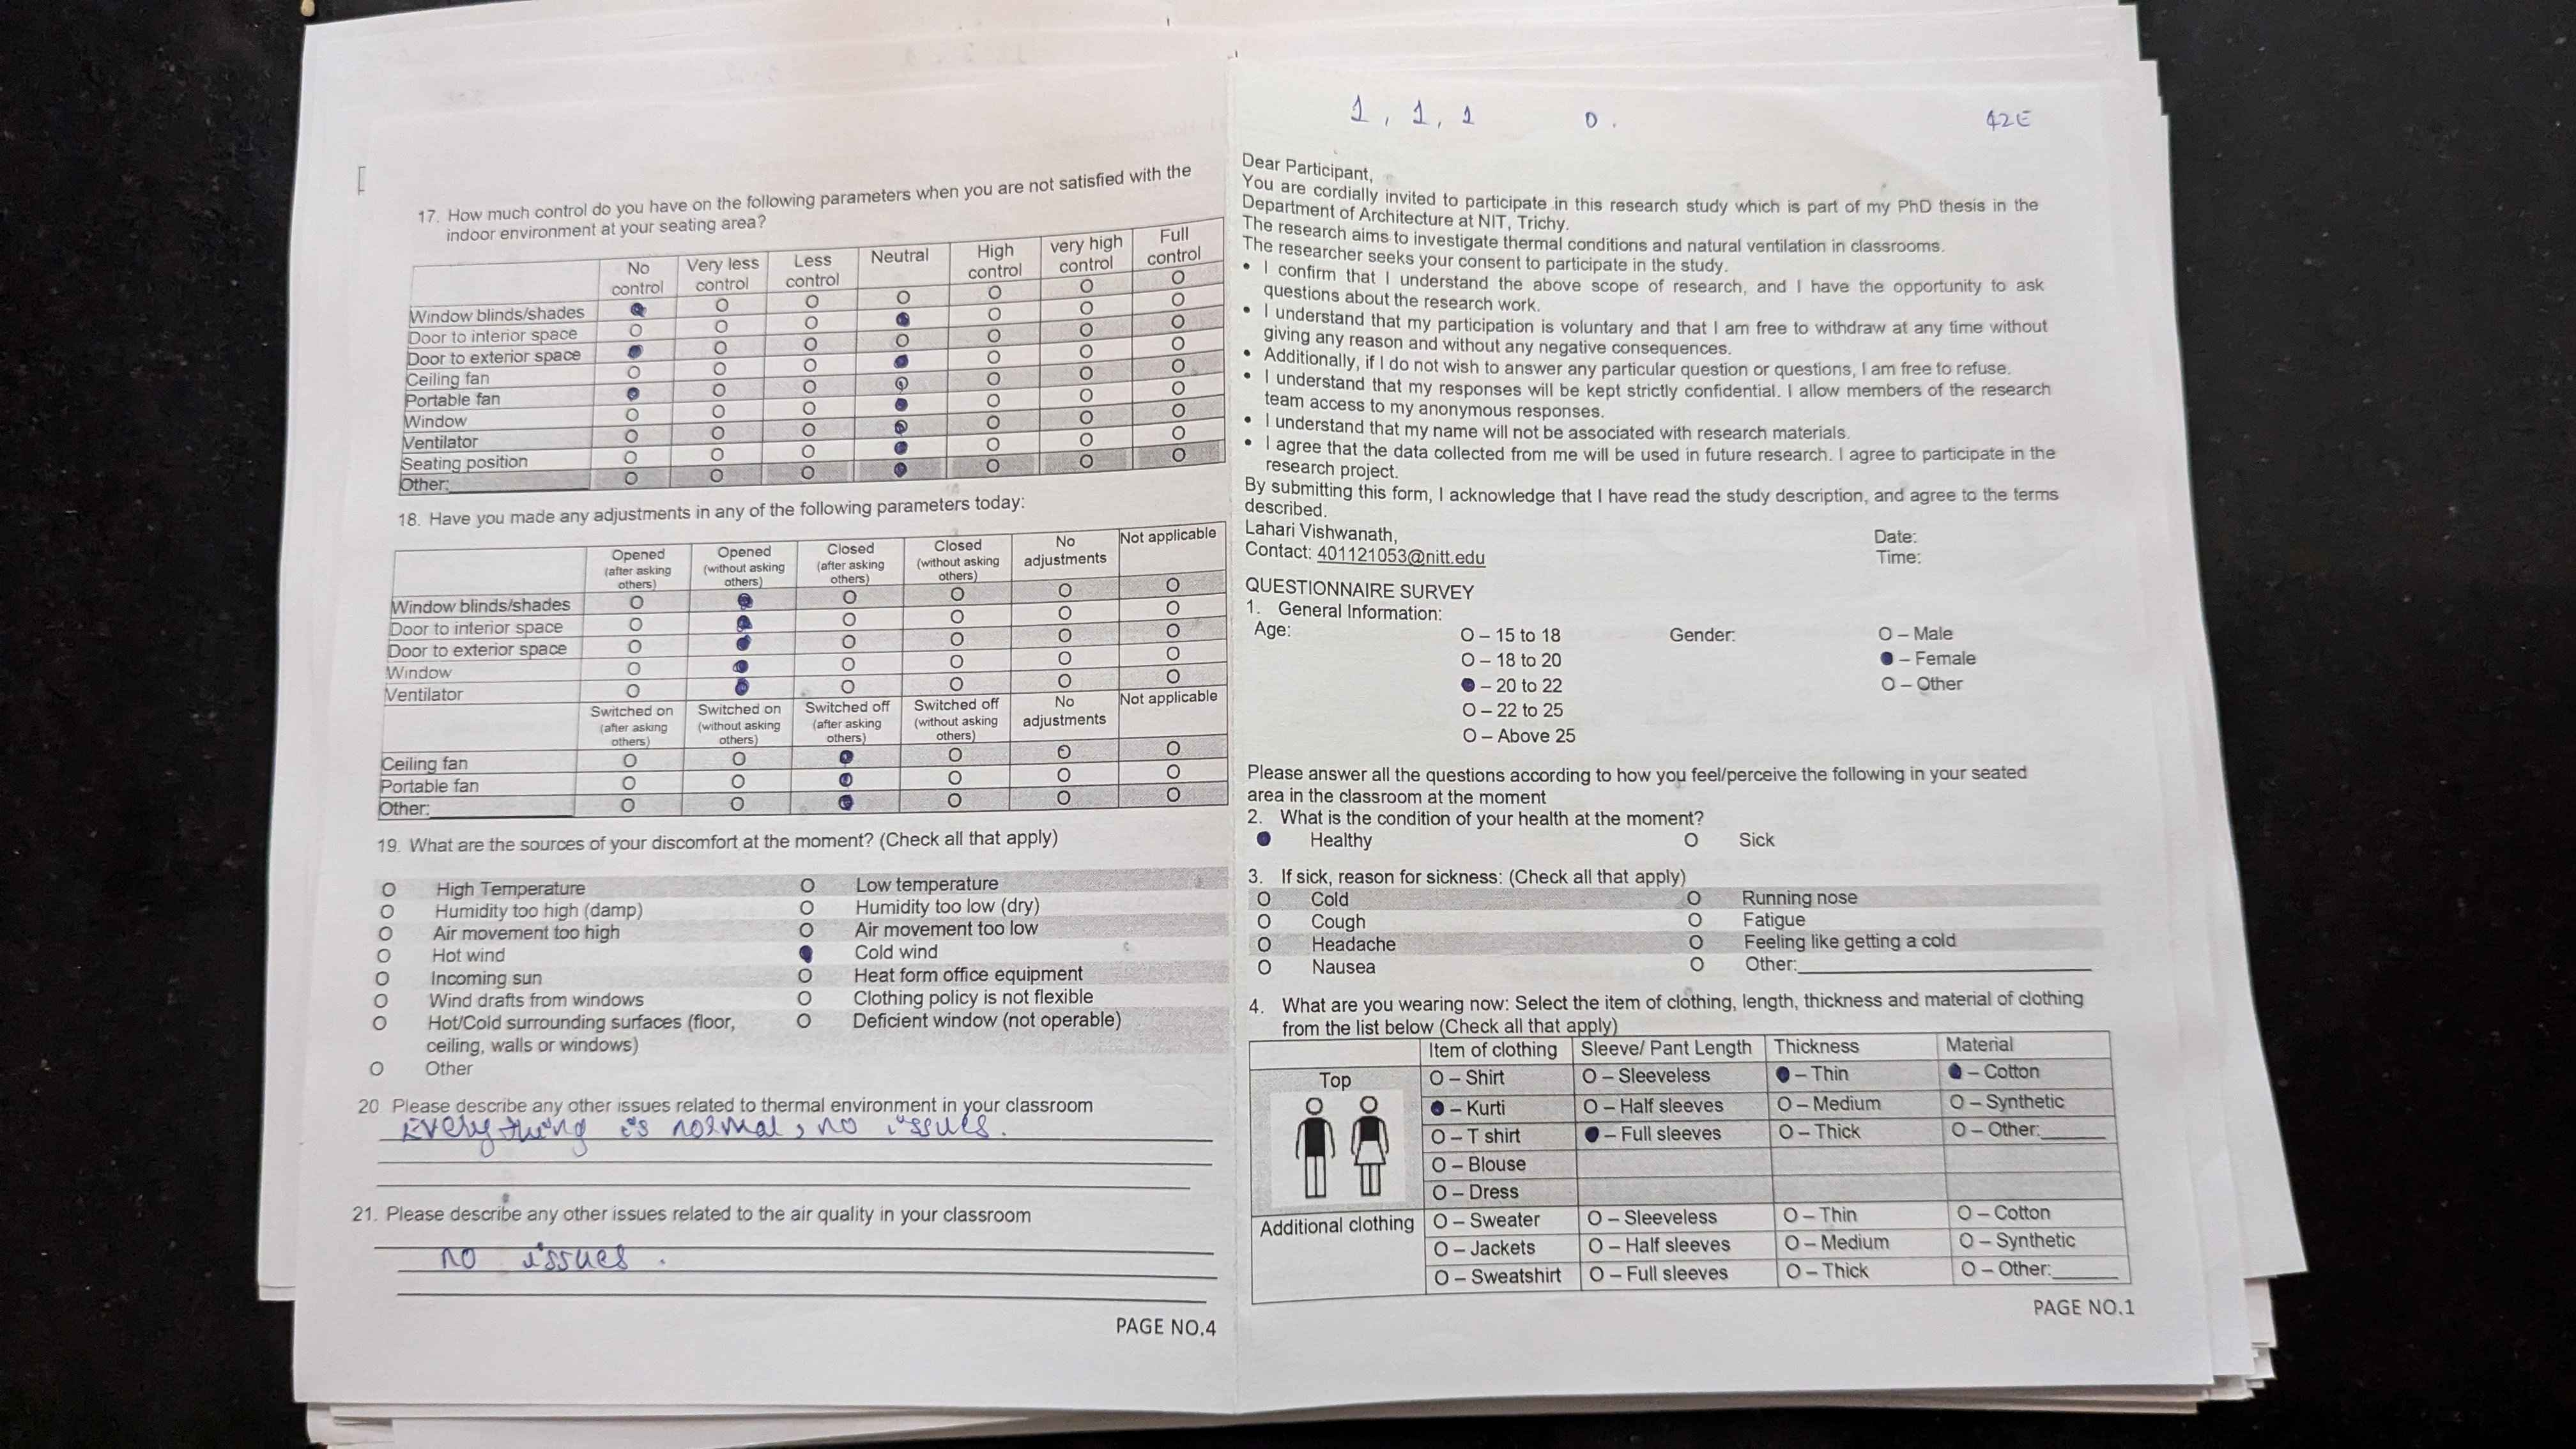 17. How much control do you have on the following parameters when you are not satisfied with the
indoor environment at your seating area?
No control Very less control Less control Neutral High control very high control Full control
Window blinds/shades O O O O O O
Door to interior space O O O O O O
Door to exterior space O O O O O O
Ceiling fan O O O O O O
Portable fan O O O O O O
Window O O O O O O
Ventilator O O O O O O
Seating position O O O O O O
Other: O O O O O O
18. Have you made any adjustments in any of the following parameters today:
Opened (after asking others) Opened (without asking others) Closed (after asking others) Closed (without asking others) No adjustments Not applicable
Window blinds/shades O O O O O
Door to interior space O O O O O
Door to exterior space O O O O O
Window O O O O O
Ventilator O O O O O
Switched on (after asking others) Switched on (without asking others) Switched off (after asking others) Switched off (without asking others) No adjustments Not applicable
Ceiling fan O O O O O
Portable fan O O O O O
Other: O O O O O
19. What are the sources of your discomfort at the moment? (Check all that apply)
O High Temperature O Low temperature
O Humidity too high (damp) O Humidity too low (dry)
O Air movement too high O Air movement too low
O Hot wind Cold wind
O Incoming sun O Heat form office equipment
O Wind drafts from windows O Clothing policy is not flexible
O Hot/Cold surrounding surfaces (floor, O Deficient window (not operable)
ceiling, walls or windows)
O Other
20 Please describe any other issues related to thermal environment in your classroom
Everything is normal, no issues.
21. Please describe any other issues related to the air quality in your classroom
no issues.
PAGE NO.4
1, 1, 1 0. 42E
Dear Participant,
You are cordially invited to participate in this research study which is part of my PhD thesis in the
Department of Architecture at NIT, Trichy.
The research aims to investigate thermal conditions and natural ventilation in classrooms.
The researcher seeks your consent to participate in the study.
• I confirm that I understand the above scope of research, and I have the opportunity to ask
questions about the research work.
• I understand that my participation is voluntary and that I am free to withdraw at any time without
giving any reason and without any negative consequences.
• Additionally, if I do not wish to answer any particular question or questions, I am free to refuse.
• I understand that my responses will be kept strictly confidential. I allow members of the research
team access to my anonymous responses.
• I understand that my name will not be associated with research materials.
• I agree that the data collected from me will be used in future research. I agree to participate in the
research project.
By submitting this form, I acknowledge that I have read the study description, and agree to the terms
described.
Lahari Vishwanath, Date:
Contact: 401121053@nitt.edu Time:
QUESTIONNAIRE SURVEY
1. General Information:
Age: O – 15 to 18 Gender: O – Male
O – 18 to 20 – Female
– 20 to 22 O – Other
O – 22 to 25
O – Above 25
Please answer all the questions according to how you feel/perceive the following in your seated
area in the classroom at the moment
2. What is the condition of your health at the moment?
Healthy O Sick
3. If sick, reason for sickness: (Check all that apply)
O Cold O Running nose
O Cough O Fatigue
O Headache O Feeling like getting a cold
O Nausea O Other:
4. What are you wearing now: Select the item of clothing, length, thickness and material of clothing
from the list below (Check all that apply)
Item of clothing Sleeve/ Pant Length Thickness Material
Top O – Shirt O – Sleeveless – Thin – Cotton
– Kurti O – Half sleeves O – Medium O – Synthetic
O – T shirt – Full sleeves O – Thick O – Other:
O – Blouse
O – Dress
Additional clothing O – Sweater O – Sleeveless O – Thin O – Cotton
O – Jackets O – Half sleeves O – Medium O – Synthetic
O – Sweatshirt O – Full sleeves O – Thick O – Other:
PAGE NO.1